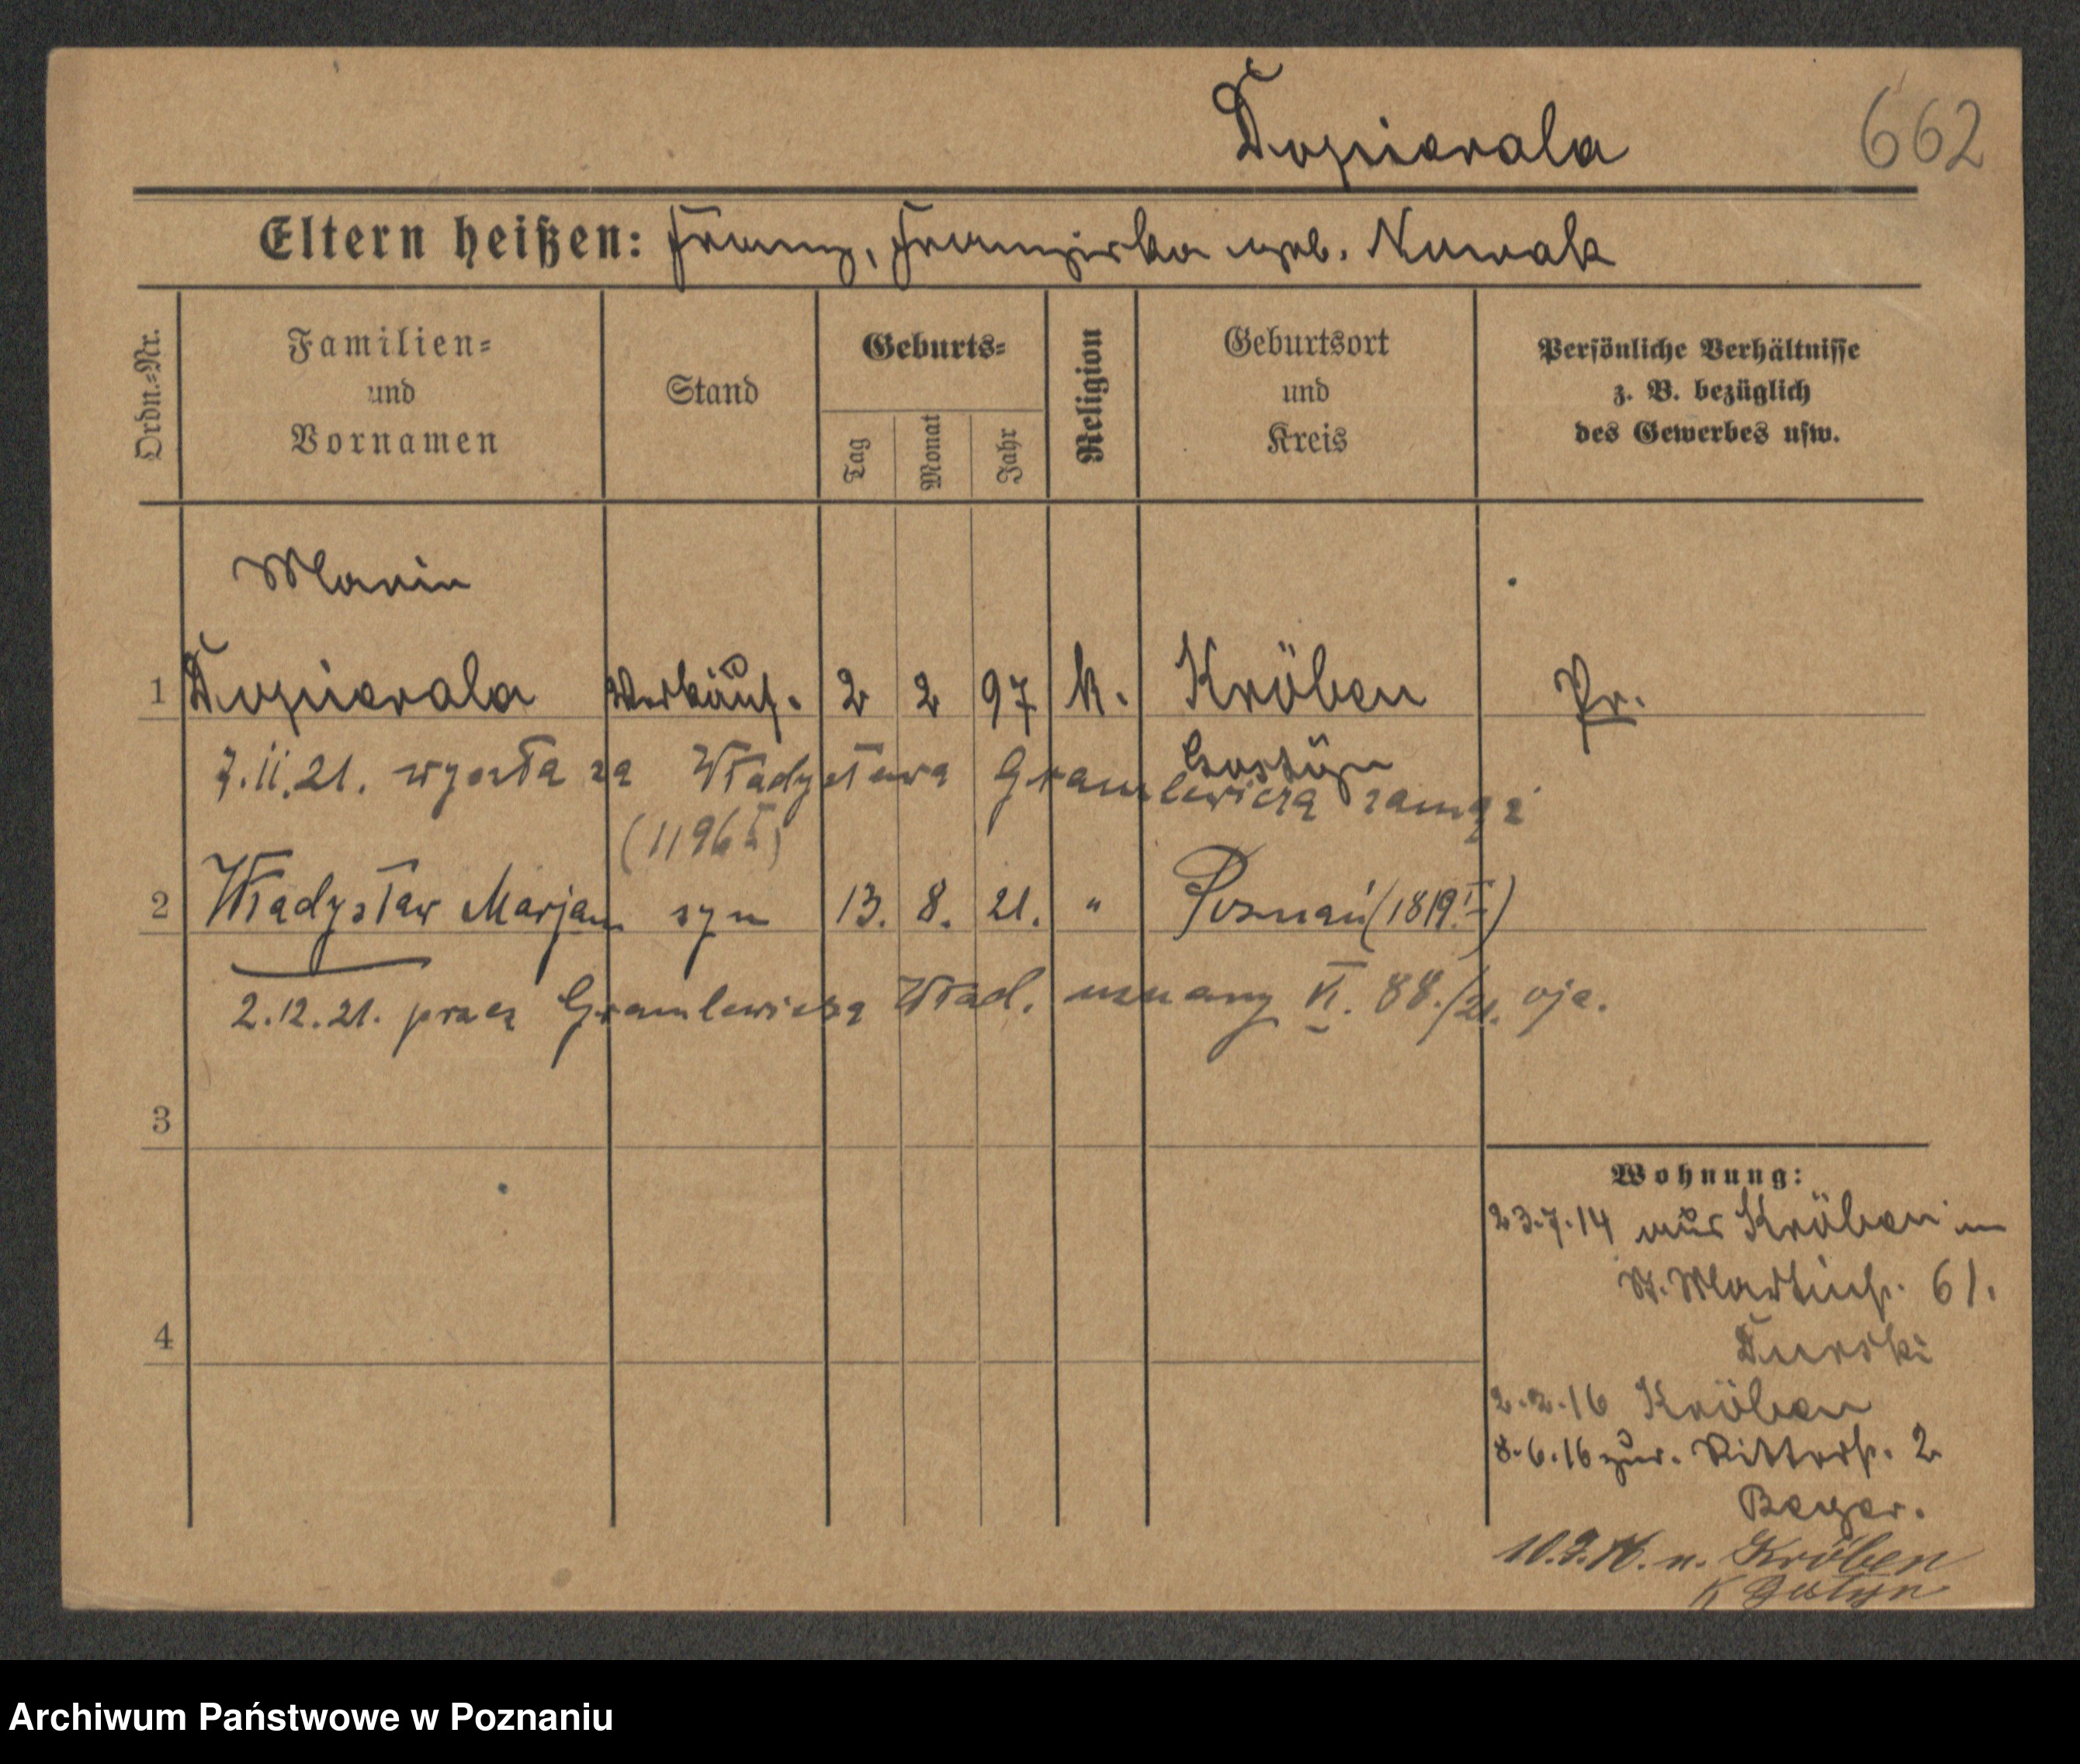 Dopierala 662
Eltern heißen: Franz, Franziska geb. Nowak
Ordn.-Nr.
Familien-
und
Vornamen
Stand
Geburts-
Tag
Monat
Jahr
Religion
Geburtsort
und
Kreis
Persönliche Verhältnisse
z. B. bezüglich
des Gewerbes usw.
Marie
1 Dopierala Verkäuf. 2 2 97 k. Kröben Pr.
Gostyn
7.11.21. wyszła za Władysława Gramlewicza zamąż
(1196 I)
2 Władysław Marjan syn 13. 8. 21. " Poznań (1819. I)
2.12.21. przez Gramlewicza Wład. uznany 88./21. ojc.
3
4
Wohnung:
23.7.14 aus Kröben in
St. Martinstr. 61.
Turski
2.2.16 Kröben
8.6.16 zur. Ritterstr. 2
Beyer.
n. Kröben
K Gostyn
Archiwum Państwowe w Poznaniu